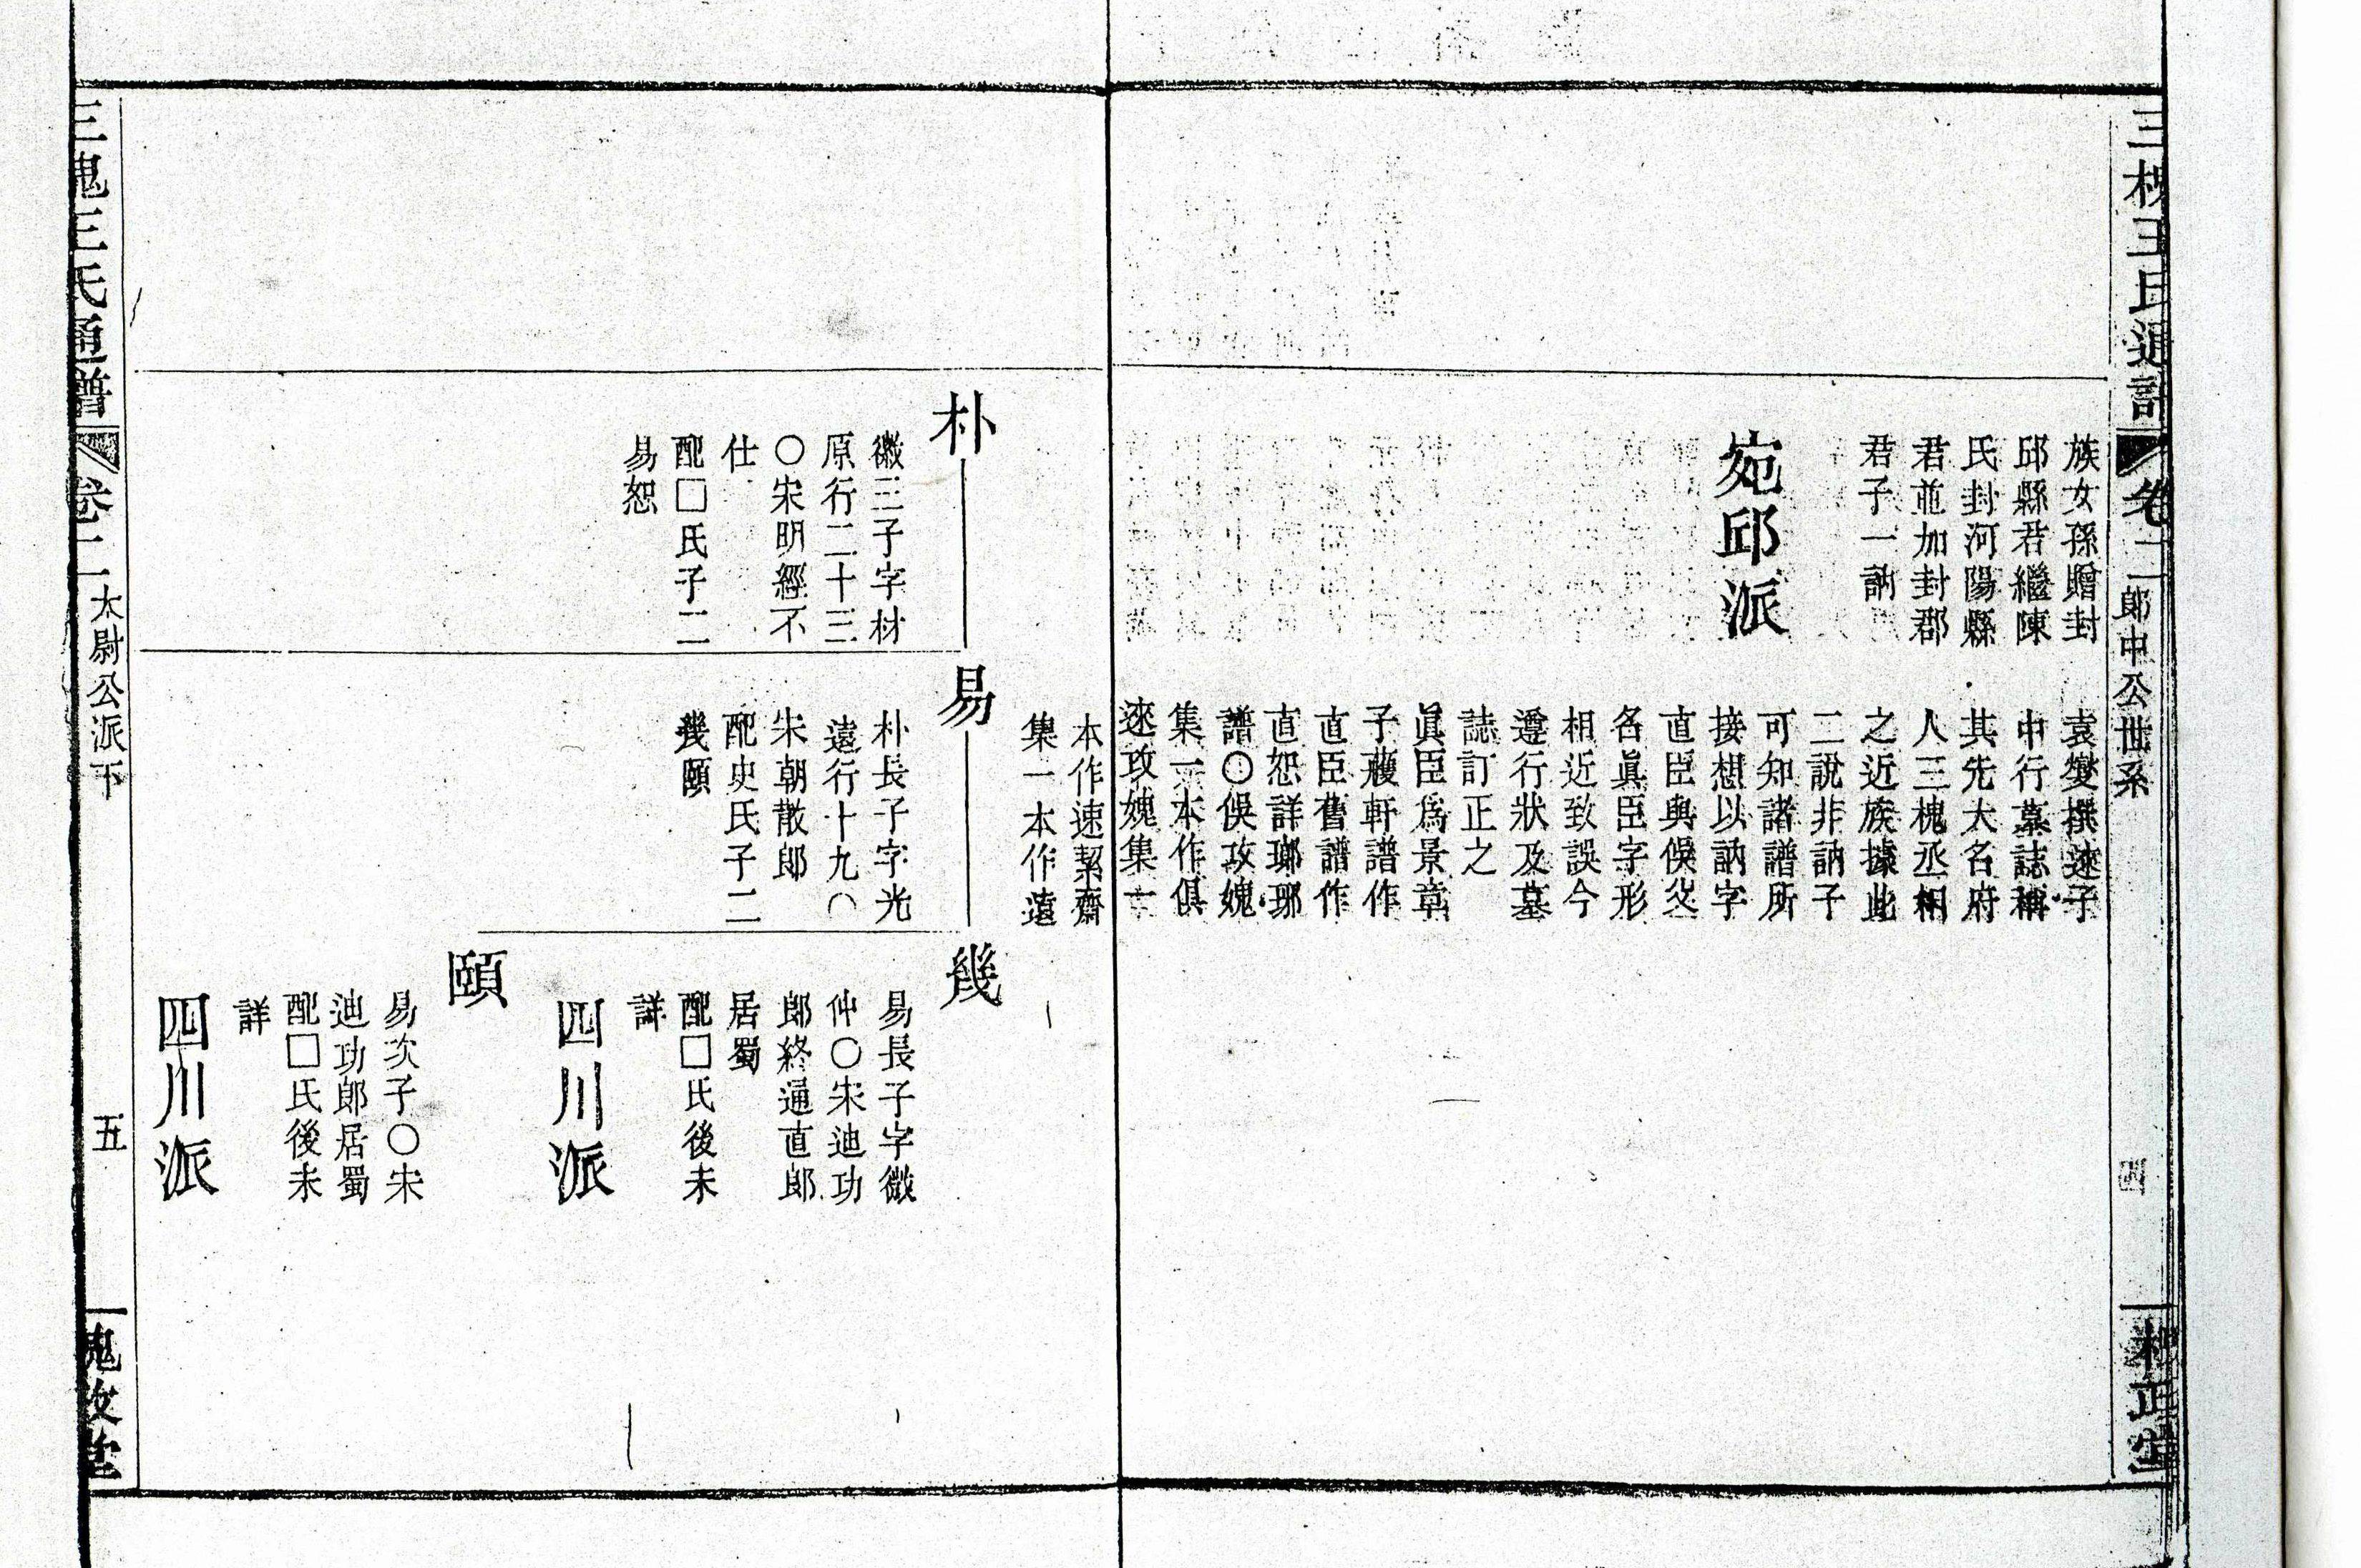 卷二
郎中公世系
四
族女孫贈封
邱縣君繼陳
氏封河陽縣
君並加封郡
君子一訥
宛邱派
袁燮撰速子
中行墓誌稱
其先大名府
人三槐丞相
之近族據此
二說非訥子
可知諸譜所
接想以訥字
直臣與俁父
名眞臣字形
相近致誤今
遵行狀及墓
誌訂正之
眞臣爲景章
子蘐軒譜作
直臣舊譜作
直恕詳瑯琊
譜○俁攻媿
集一本作俱
速攻媿集一
本作速絜齋
集一本作遠
朴
徽三子字材
原行二十三
○宋明經不
仕
配□氏子二
易恕
易
朴長子字光
遠行十九○
宋朝散郎
配史氏子二
幾頤
幾
易長子字微
仲○宋迪功
郎終通直郎
居蜀
配□氏後未
詳
四川派
頤
易次子○宋
迪功郎居蜀
配□氏後未
詳
四川派
三槐王氏通譜
卷二
太尉公派下
五